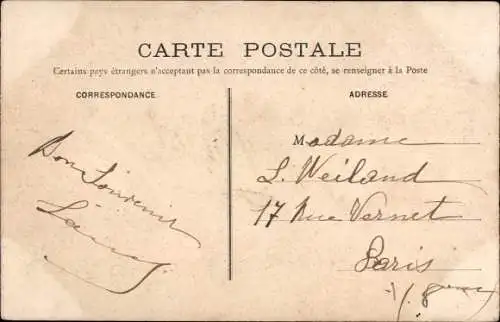 CARTE POSTALE
Certains pays étrangers n'acceptant pas la correspondance de ce côté, se renseigner à la Poste
CORRESPONDANCE
ADRESSE
Bon Souvenir
Madame
L. Weiland
17 Rue Vernet
Paris